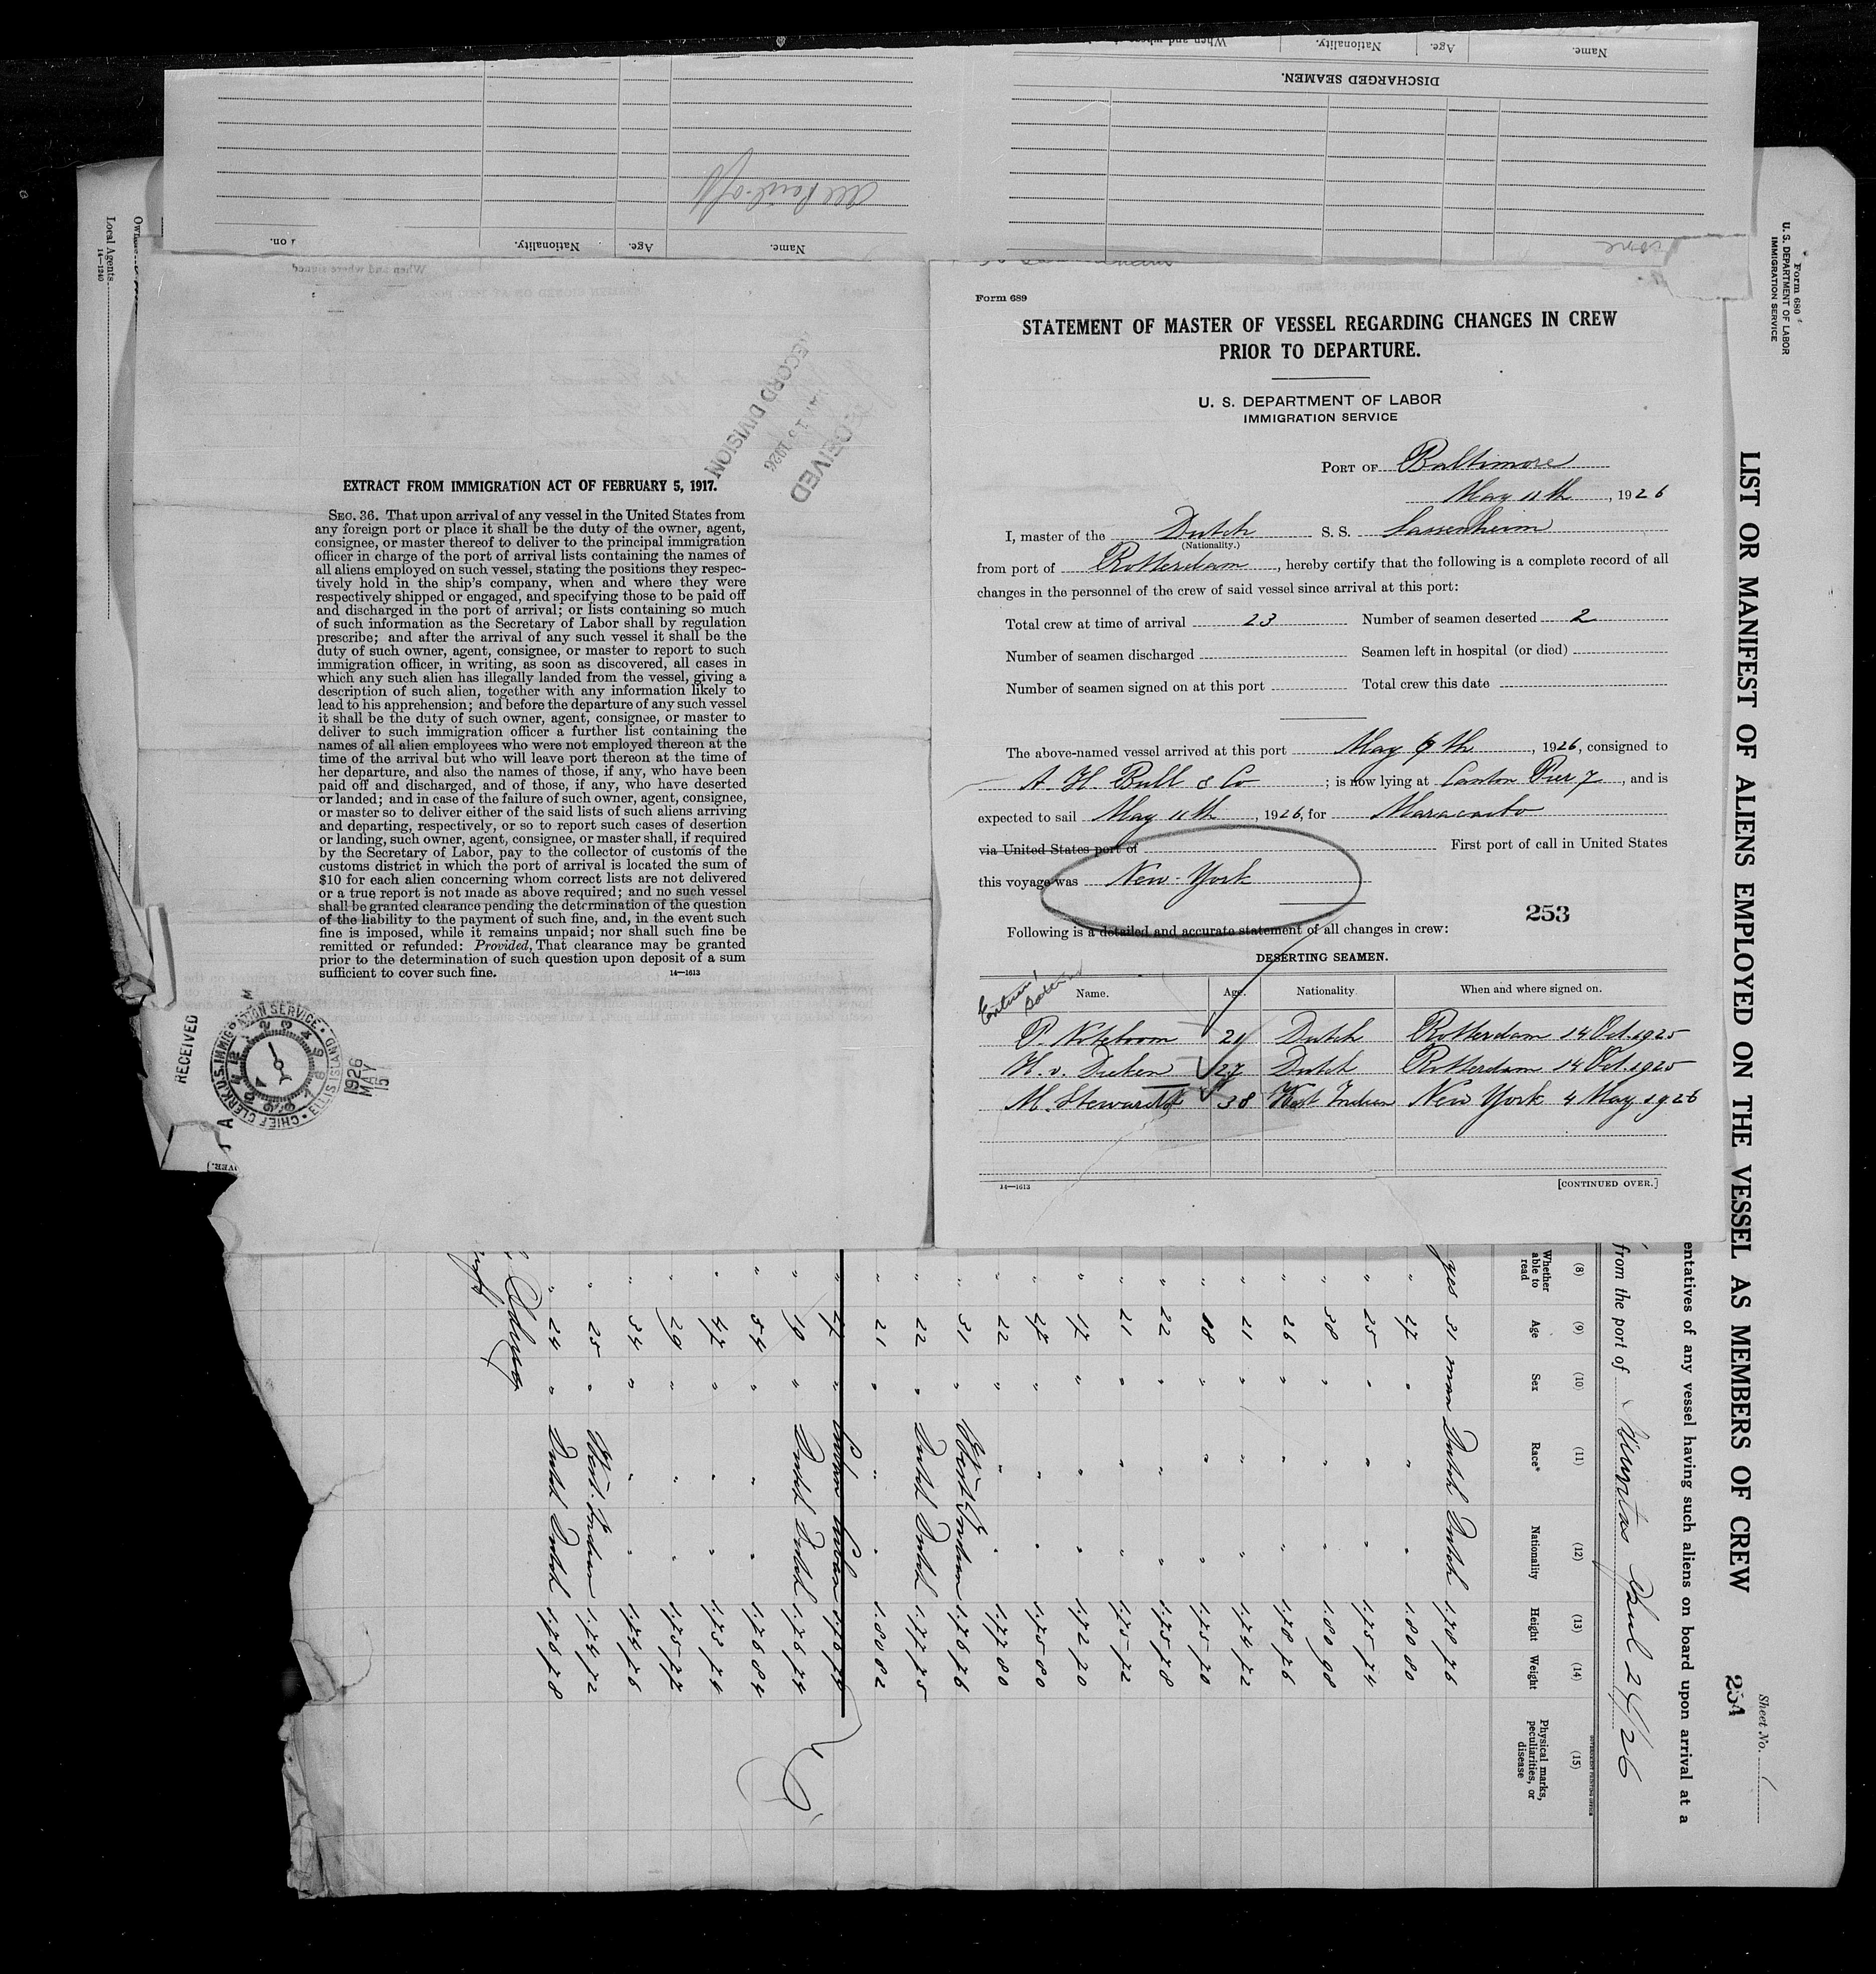 Name.
Age.
Nationality.
When and where signed
DISCHARGED SEAMEN.
Name.
Age.
Nationality.
Local Agents
14—1240
When and where signed
RECEIVED
1926
RECORD DIVISION
EXTRACT FROM IMMIGRATION ACT OF FEBRUARY 5, 1917.
SEC. 36. That upon arrival of any vessel in the United States from
any foreign port or place it shall be the duty of the owner, agent,
consignee, or master thereof to deliver to the principal immigration
officer in charge of the port of arrival lists containing the names of
all aliens employed on such vessel, stating the positions they respec-
tively hold in the ship's company, when and where they were
respectively shipped or engaged, and specifying those to be paid off
and discharged in the port of arrival; or lists containing so much
of such information as the Secretary of Labor shall by regulation
prescribe; and after the arrival of any such vessel it shall be the
duty of such owner, agent, consignee, or master to report to such
immigration officer, in writing, as soon as discovered, all cases in
which any such alien has illegally landed from the vessel, giving a
description of such alien, together with any information likely to
lead to his apprehension; and before the departure of any such vessel
it shall be the duty of such owner, agent, consignee, or master to
deliver to such immigration officer a further list containing the
names of all alien employees who were not employed thereon at the
time of the arrival but who will leave port thereon at the time of
her departure, and also the names of those, if any, who have been
paid off and discharged, and of those, if any, who have deserted
or landed; and in case of the failure of such owner, agent, consignee,
or master so to deliver either of the said lists of such aliens arriving
and departing, respectively, or so to report such cases of desertion
or landing, such owner, agent, consignee, or master shall, if required
by the Secretary of Labor, pay to the collector of customs of the
customs district in which the port of arrival is located the sum of
$10 for each alien concerning whom correct lists are not delivered
or a true report is not made as above required; and no such vessel
shall be granted clearance pending the determination of the question
of the liability to the payment of such fine, and, in the event such
fine is imposed, while it remains unpaid; nor shall such fine be
remitted or refunded: Provided, That clearance may be granted
prior to the determination of such question upon deposit of a sum
sufficient to cover such fine.
14—1613
RECEIVED
CHIEF CLERK U.S. IMMIGRATION SERVICE ELLIS ISLAND
1926
MAY
15
Form 689
STATEMENT OF MASTER OF VESSEL REGARDING CHANGES IN CREW
PRIOR TO DEPARTURE.
U. S. DEPARTMENT OF LABOR
IMMIGRATION SERVICE
PORT OF Baltimore
May 11th, 1926
I, master of the Dutch S. S. Sassenheim
(Nationality.)
from port of Rotterdam, hereby certify that the following is a complete record of all
changes in the personnel of the crew of said vessel since arrival at this port:
Total crew at time of arrival 23 Number of seamen deserted 2
Number of seamen discharged Seamen left in hospital (or died)
Number of seamen signed on at this port Total crew this date
The above-named vessel arrived at this port May 6th, 1926, consigned to
A. H. Bull & Co; is now lying at Canton Pier 7, and is
expected to sail May 11th, 1926, for Maracaibo
via United States port of First port of call in United States
this voyage was New-York
253
Following is a detailed and accurate statement of all changes in crew:
DESERTING SEAMEN.
Name. Age. Nationality When and where signed on.
P. Noteboom 21 Dutch Rotterdam 14 Oct. 1925
H. v. Dieken 27 Dutch Rotterdam 14 Oct. 1925
M. Steward 38 West Indien New York 4 May 1926
14—1613
[CONTINUED OVER.]
Form 680
U. S. DEPARTMENT OF LABOR
IMMIGRATION SERVICE
LIST OR MANIFEST OF ALIENS EMPLOYED ON THE VESSEL AS MEMBERS OF CREW
254
Sheet No. 1
entatives of any vessel having such aliens on board upon arrival at a
from the port of
24/26
(8) (9) (10) (11) (12) (13) (14) (15)
Whether able to read Age Sex Race* Nationality Height Weight Physical marks, peculiarities, or disease
yes 31 man Dutch Dutch 1.78 76
" 27 " " " 1.80 80
" 25 " " " 1.75 74
" 38 " " " 1.80 98
" 26 " " " 1.78 76
" 21 " " " 1.74 72
" 18 " " " 1.75 70
" 22 " " " 1.75 78
" 21 " " " 1.75 72
" 17 " " " 1.72 70
" 27 " " " 1.75 80
" 22 " " " 1.77 80
" 31 " West Indien 1.76 76
" 22 " Dutch Dutch 1.77 75
" 21 " " " 1.80 82
" 27 "
" 19 " Dutch Dutch 1.76 74
" 54 " " " 1.76 84
" 47 " " " 1.75 74
" 29 " " " 1.75 77
" 34 " " " 1.74 76
" 25 " West. Indien 1.74 72
" 24 " Dutch Dutch 1.76 78